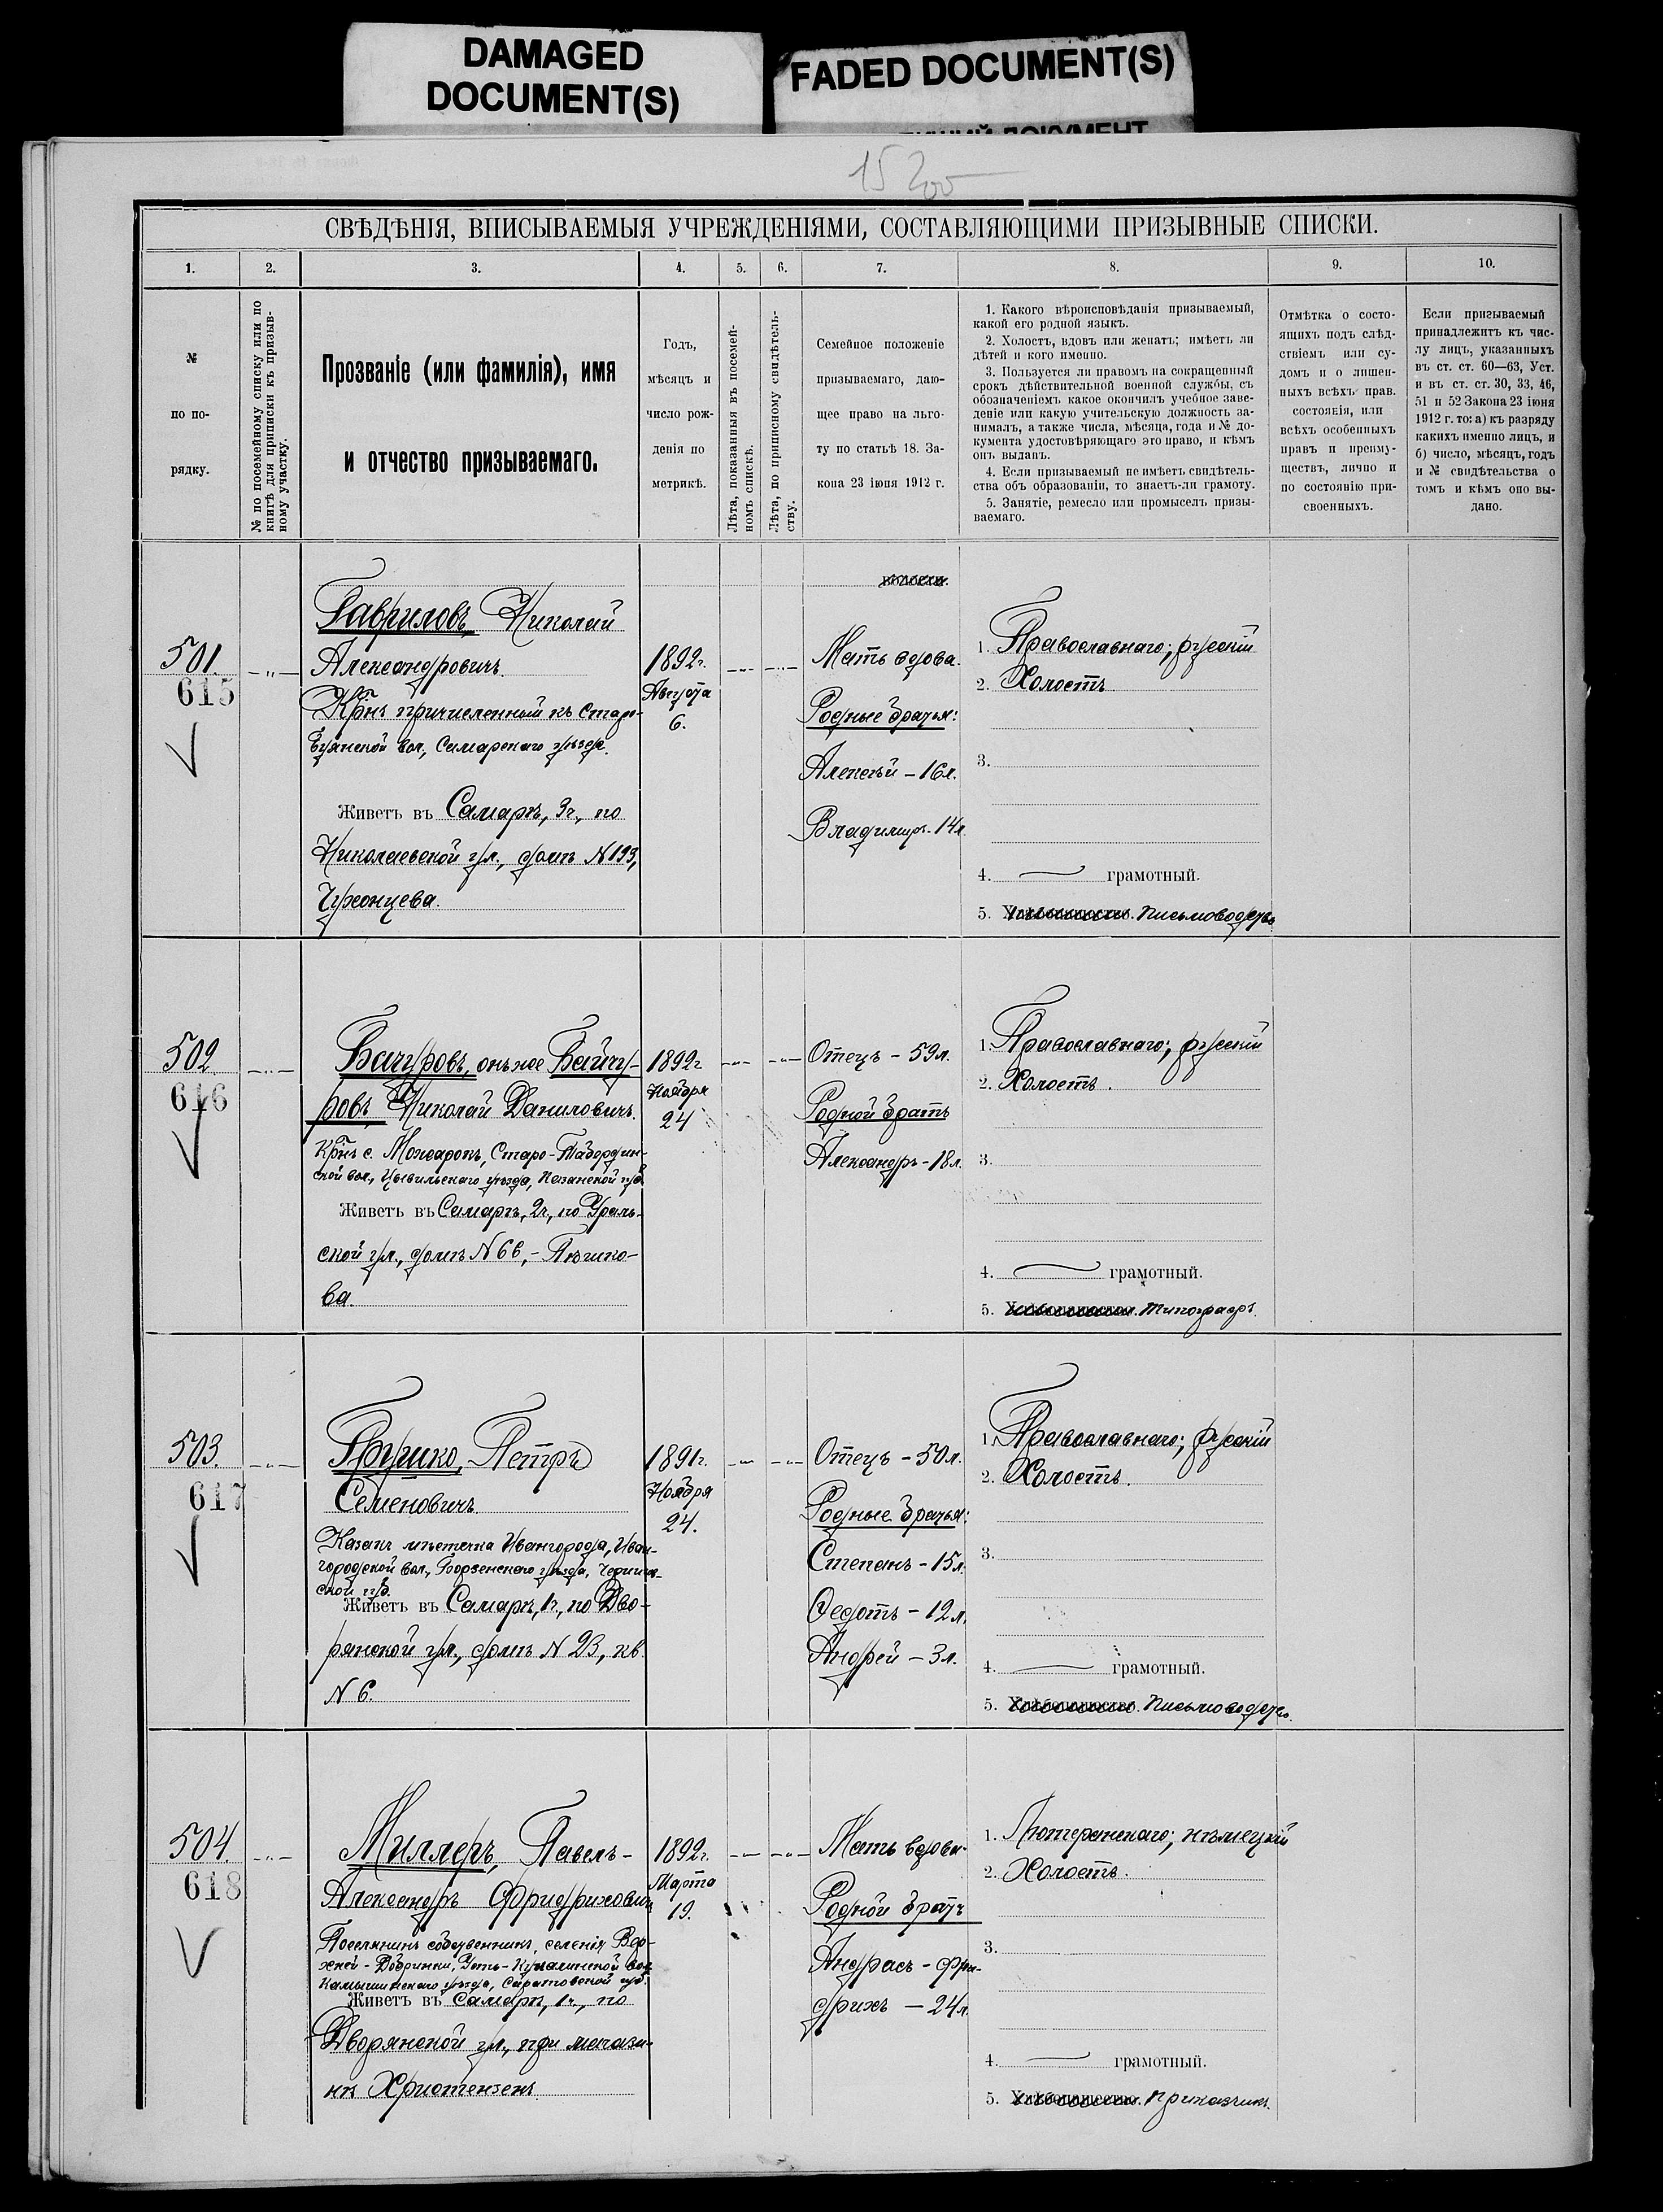 DAMAGED
DOCUMENT(S)
FADED DOCUMENT(S)
15 200
СВѢДѢНІЯ, ВПИСЫВАЕМЫЯ УЧРЕЖДЕНІЯМИ, СОСТАВЛЯЮЩИМИ ПРИЗЫВНЫЕ СПИСКИ.
1. 2. 3. 4. 5. 6. 7. 8. 9. 10.
№
по по-
рядку.
№ по посемейному списку или по
книгѣ для приписки къ призыв-
ному участку.
Прозваніе (или фамилія), имя
и отчество призываемаго.
Годъ,
мѣсяцъ и
число рож-
денія по
метрикѣ.
Лѣта, показанныя въ посемей-
номъ спискѣ.
Лѣта, по приписному свидѣтель-
ству.
Семейное положеніе
призываемаго, даю-
щее право на льго-
ту по статьѣ 18. За-
кона 23 іюня 1912 г.
1. Какого вѣроисповѣданія призываемый,
какой его родной языкъ.
2. Холостъ, вдовъ или женатъ; имѣетъ ли
дѣтей и кого именно.
3. Пользуется ли правомъ на сокращенный
срокъ дѣйствительной военной службы, съ
обозначеніемъ какое окончилъ учебное заве-
деніе или какую учительскую должность за-
нималъ, а также числа, мѣсяца, года и № до-
кумента удостовѣряющаго это право, и кѣмъ
онъ выданъ.
4. Если призываемый не имѣетъ свидѣтель-
ства объ образованіи, то знаетъ-ли грамоту.
5. Занятіе, ремесло или промыселъ призы-
ваемаго.
Отмѣтка о состо-
ящихъ подъ слѣд-
ствіемъ или су-
домъ и о лишен-
ныхъ всѣхъ прав.
состоянія, или
всѣхъ особенныхъ
правъ и преиму-
ществъ, лично и
по состоянію при-
своенныхъ.
Если призываемый
принадлежитъ къ чис-
лу лицъ, указанныхъ
въ ст. ст. 60—63, Уст.
и въ ст. ст. 30, 33, 46,
51 и 52 Закона 23 іюня
1912 г. то: а) къ разряду
какихъ именно лицъ, и
б) число, мѣсяцъ, годъ
и № свидѣтельства о
томъ и кѣмъ оно вы-
дано.
501.
615
Гавриловъ, Николай
Александровичъ.
Крнъ причисленный къ Старо-
Буянской вол., Самарскаго уѣзда.
Живетъ въ Самарѣ, 3ч., по
Николаевской ул., домъ N 193,
Чужонцева.
1892г.
Августа
6.
Мать вдова.
Родные братья:
Алексѣй – 16л.
Владимиръ - 14л.
1. Православнаго; русскій
2. Холостъ.
3.
4. грамотный.
5. Хлѣбопашество. Письмоводство
502.
616
Бачуровъ, онъ же Байгу-
ровъ, Николай Даниловичъ.
Крнъ с. Можарокъ, Старо-
ской вол., Цывильскаго уѣзда, Казанской губ.
Живетъ въ Самарѣ, 2ч., по Ураль-
ской ул., домъ N 66, -
ва.
1892г
Ноября
24
Отецъ – 59л.
Родной братъ
Александръ – 18л.
1. Православнаго; русскій
2. Холостъ.
3.
4. грамотный.
5. Хлѣбопашество. Типографъ.
503.
617
Грушко, Петръ
Семеновичъ.
Казакъ мѣстечка Ивангорода, Иван-
городской вол., Борзенскаго уѣзда, Чернигов-
ской губ.
Живетъ въ Самарѣ, 1ч., по Дво-
рянской ул., домъ N 23, кв.
N 6.
1891г.
Ноября
24.
Отецъ – 50л.
Родные братья:
Степанъ – 15л.
Федотъ – 12л.
Андрей – 3л.
1. Православнаго; русскій
2. Холостъ.
3.
4. грамотный.
5. Хлѣбопашество. Письмоводство.
504.
618
Миллеръ, Павелъ-
Александръ Фридриховичъ
Поселянинъ собственникъ, селенія Вер-
хней-Добринки, Усть-Кулалинской вол.
Камышинскаго уѣзда, Саратовской губ.
Живетъ въ Самарѣ, 1ч., по
Дворянской ул., при магази-
нѣ Христензенъ
1892г.
Марта
19.
Мать вдова.
Родной братъ
Андрасъ – Фри-
дрихъ – 24л.
1. Лютеранскаго; нѣмецкій
2. Холостъ.
3.
4. грамотный.
5. Хлѣбопашество. Приказчикъ.